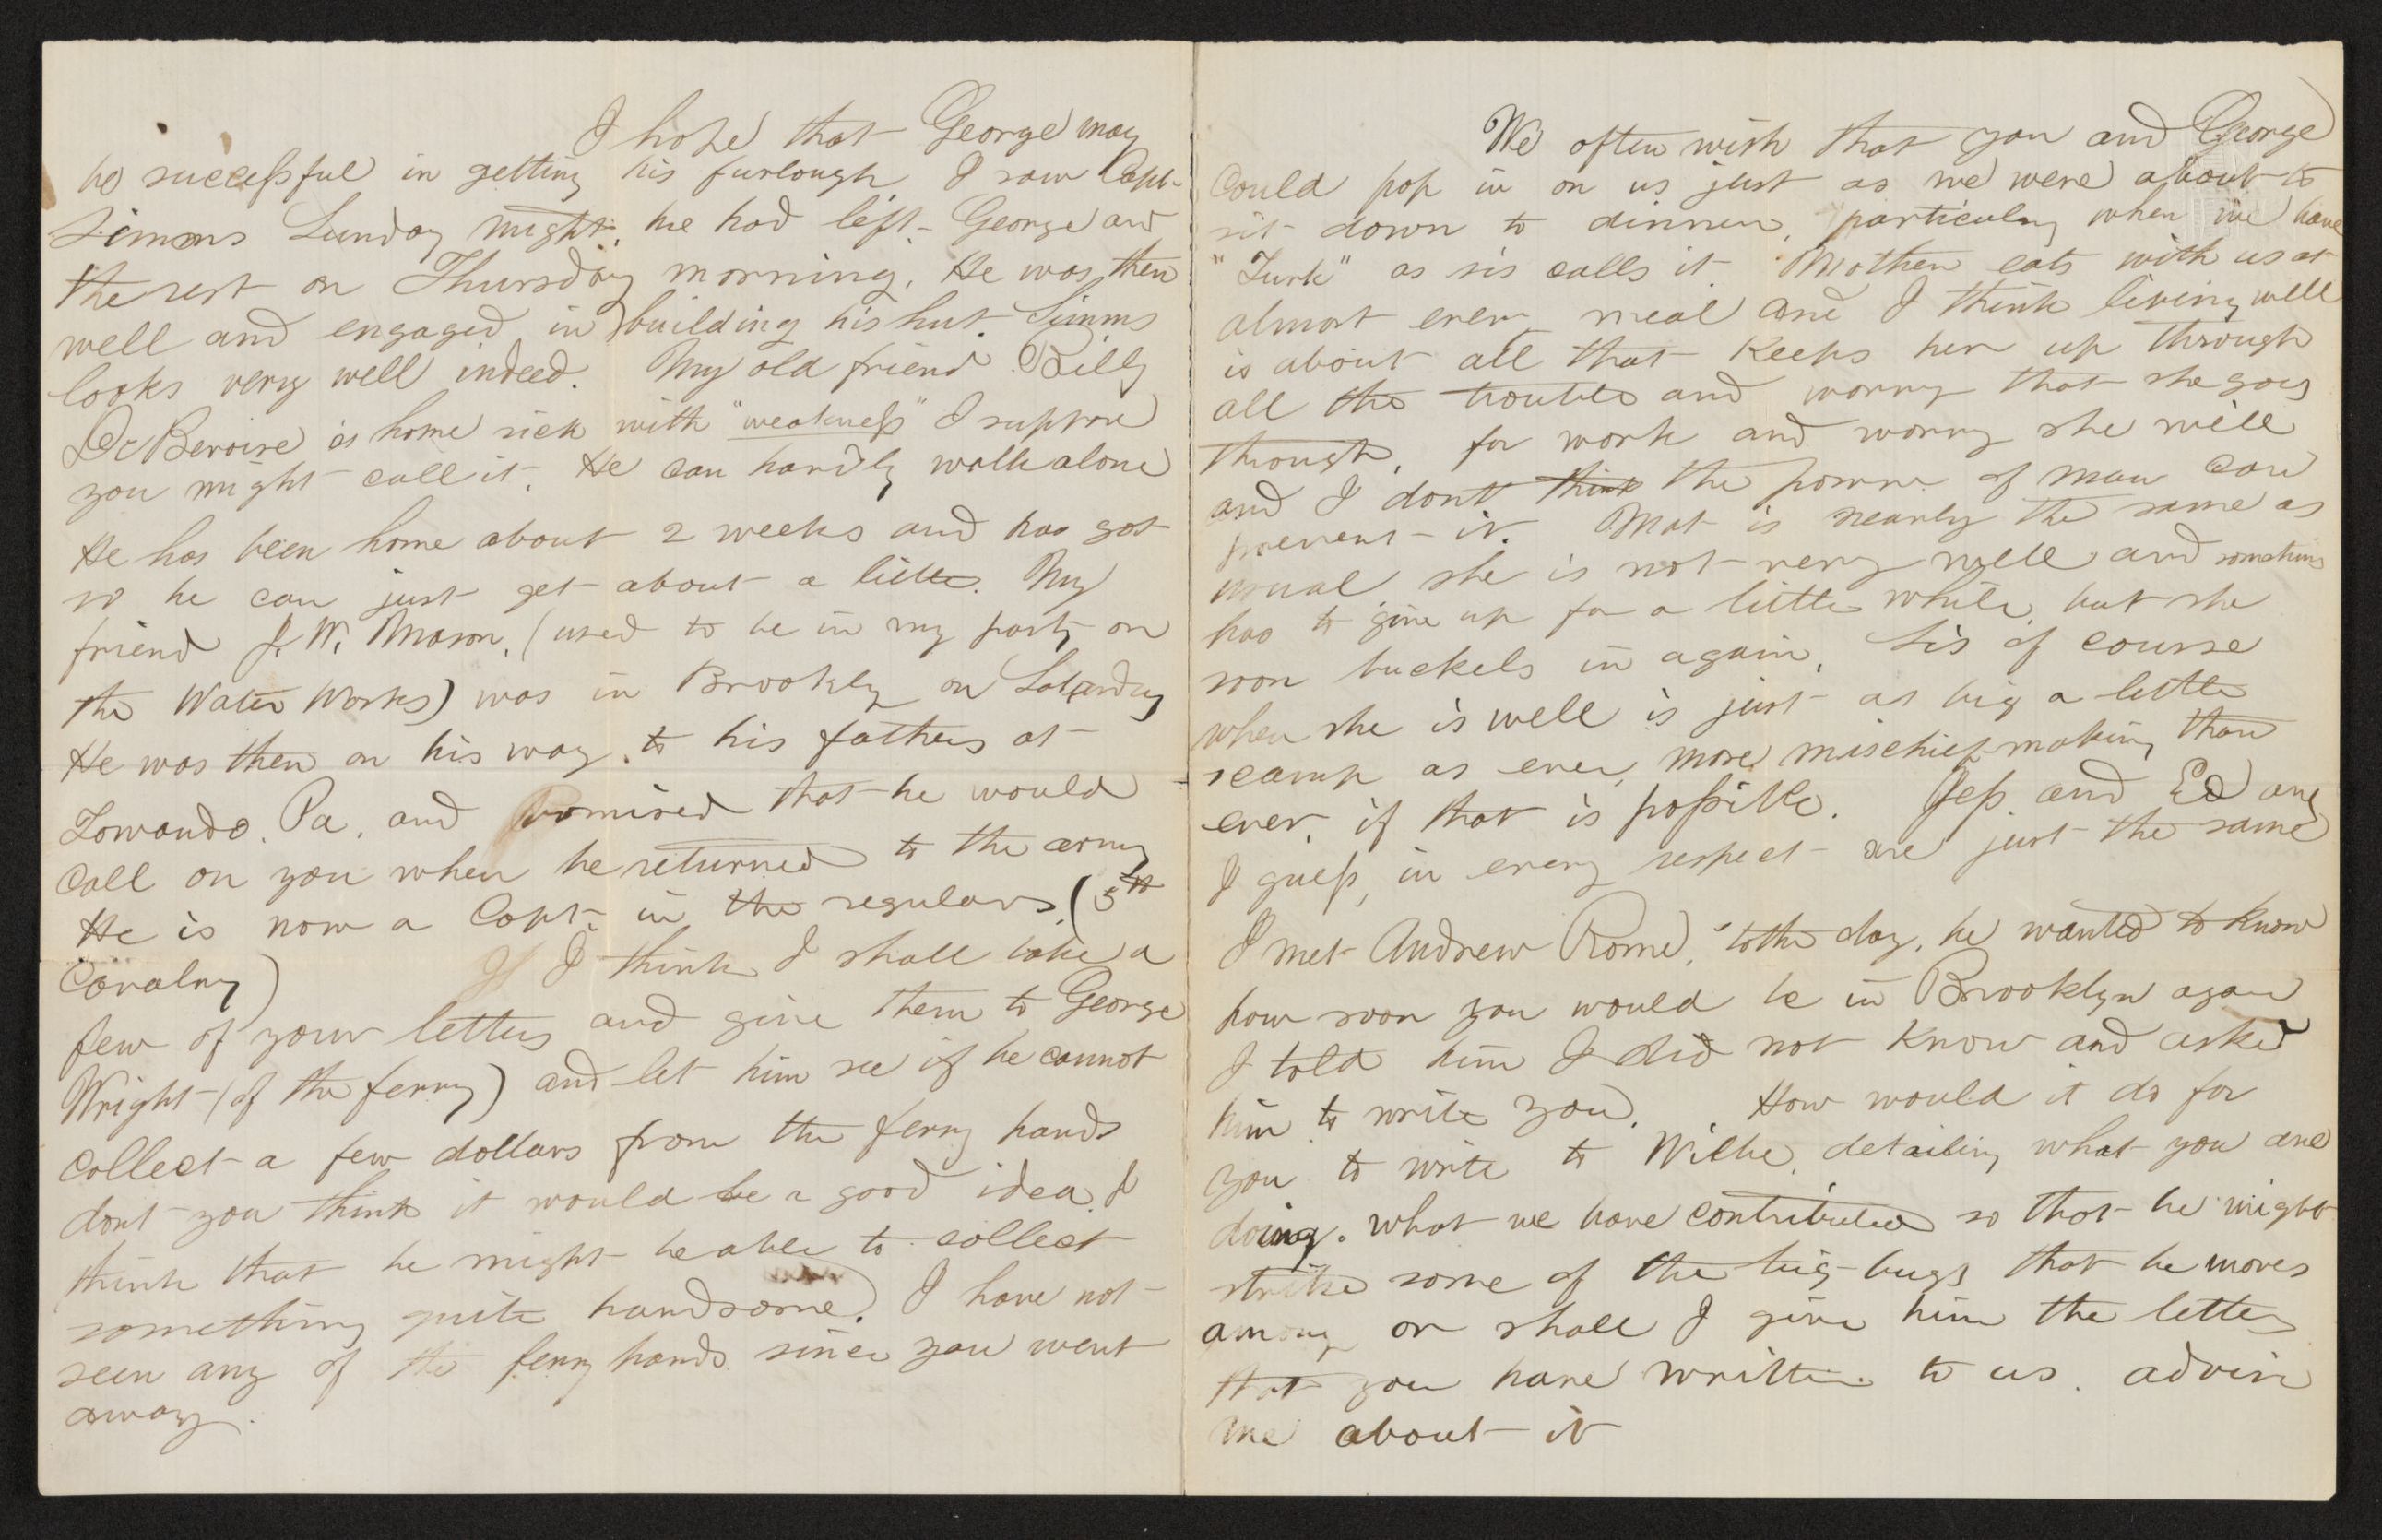 I hope that George may
be successful in getting his furlough I saw Capt
Simms Sunday night, he had left George and
the rest on Thursday morning. He was then
well and engaged in building his hut. Simms
looks very well indeed. My old friend Billy
DeBevoise is home sick with "weakness" I suppose
you might call it. He can hardly walk alone
He has been home about 2 weeks and has got
so he can just get about a little. My
friend J. W. Mason, (used to be in my party on
the Water Works) was in Brooklyn on Saturday
He was then on his way to his fathers at
Towanda. Pa. and promised that he would
call on you when he returned to the army
He is now a Capt. in the regulars, (5th
Cavalry) I think I shall take a
few of your letters and give them to George
Wright (of the ferry) and let him see if he cannot
collect a few dollars from the ferry hands
dont you think it would be a good idea. I
think that he might be able to collect
something quite handsome. I have not
seen any of the ferry hands since you went
away.
We often wish that you and George
Could pop in on us just as we were about to
sit down to dinner, particulary when we have
"Turk" as sis calls it Mother eats with us at
almost every meal and I think living well
is about all that Keeps her up through
all the trouble and worry that she goes
through, for work and worry she will
and I dont think the power of man can
prevent it. Mat is nearly the same as
usual she is not very well and sometimes
has to give up for a little while, but she
soon buckels in again. Sis of course
when she is well is just as big a little
scamp as ever, more mischief making than
ever, if that is possible. Jess and Ed are
I guess, in every respect are just the same
I met Andrew Rome, 'tother day, he wanted to know
how soon you would be in Brooklyn again
I told him I did not know and asked
him to write you. How would it do for
you to write to Willie, detailing what you are
doing. what we have contributed so that he might
strike some of the big-bugs that he moves
among or shall I give him the letters
that you have written to us. advise
me about it